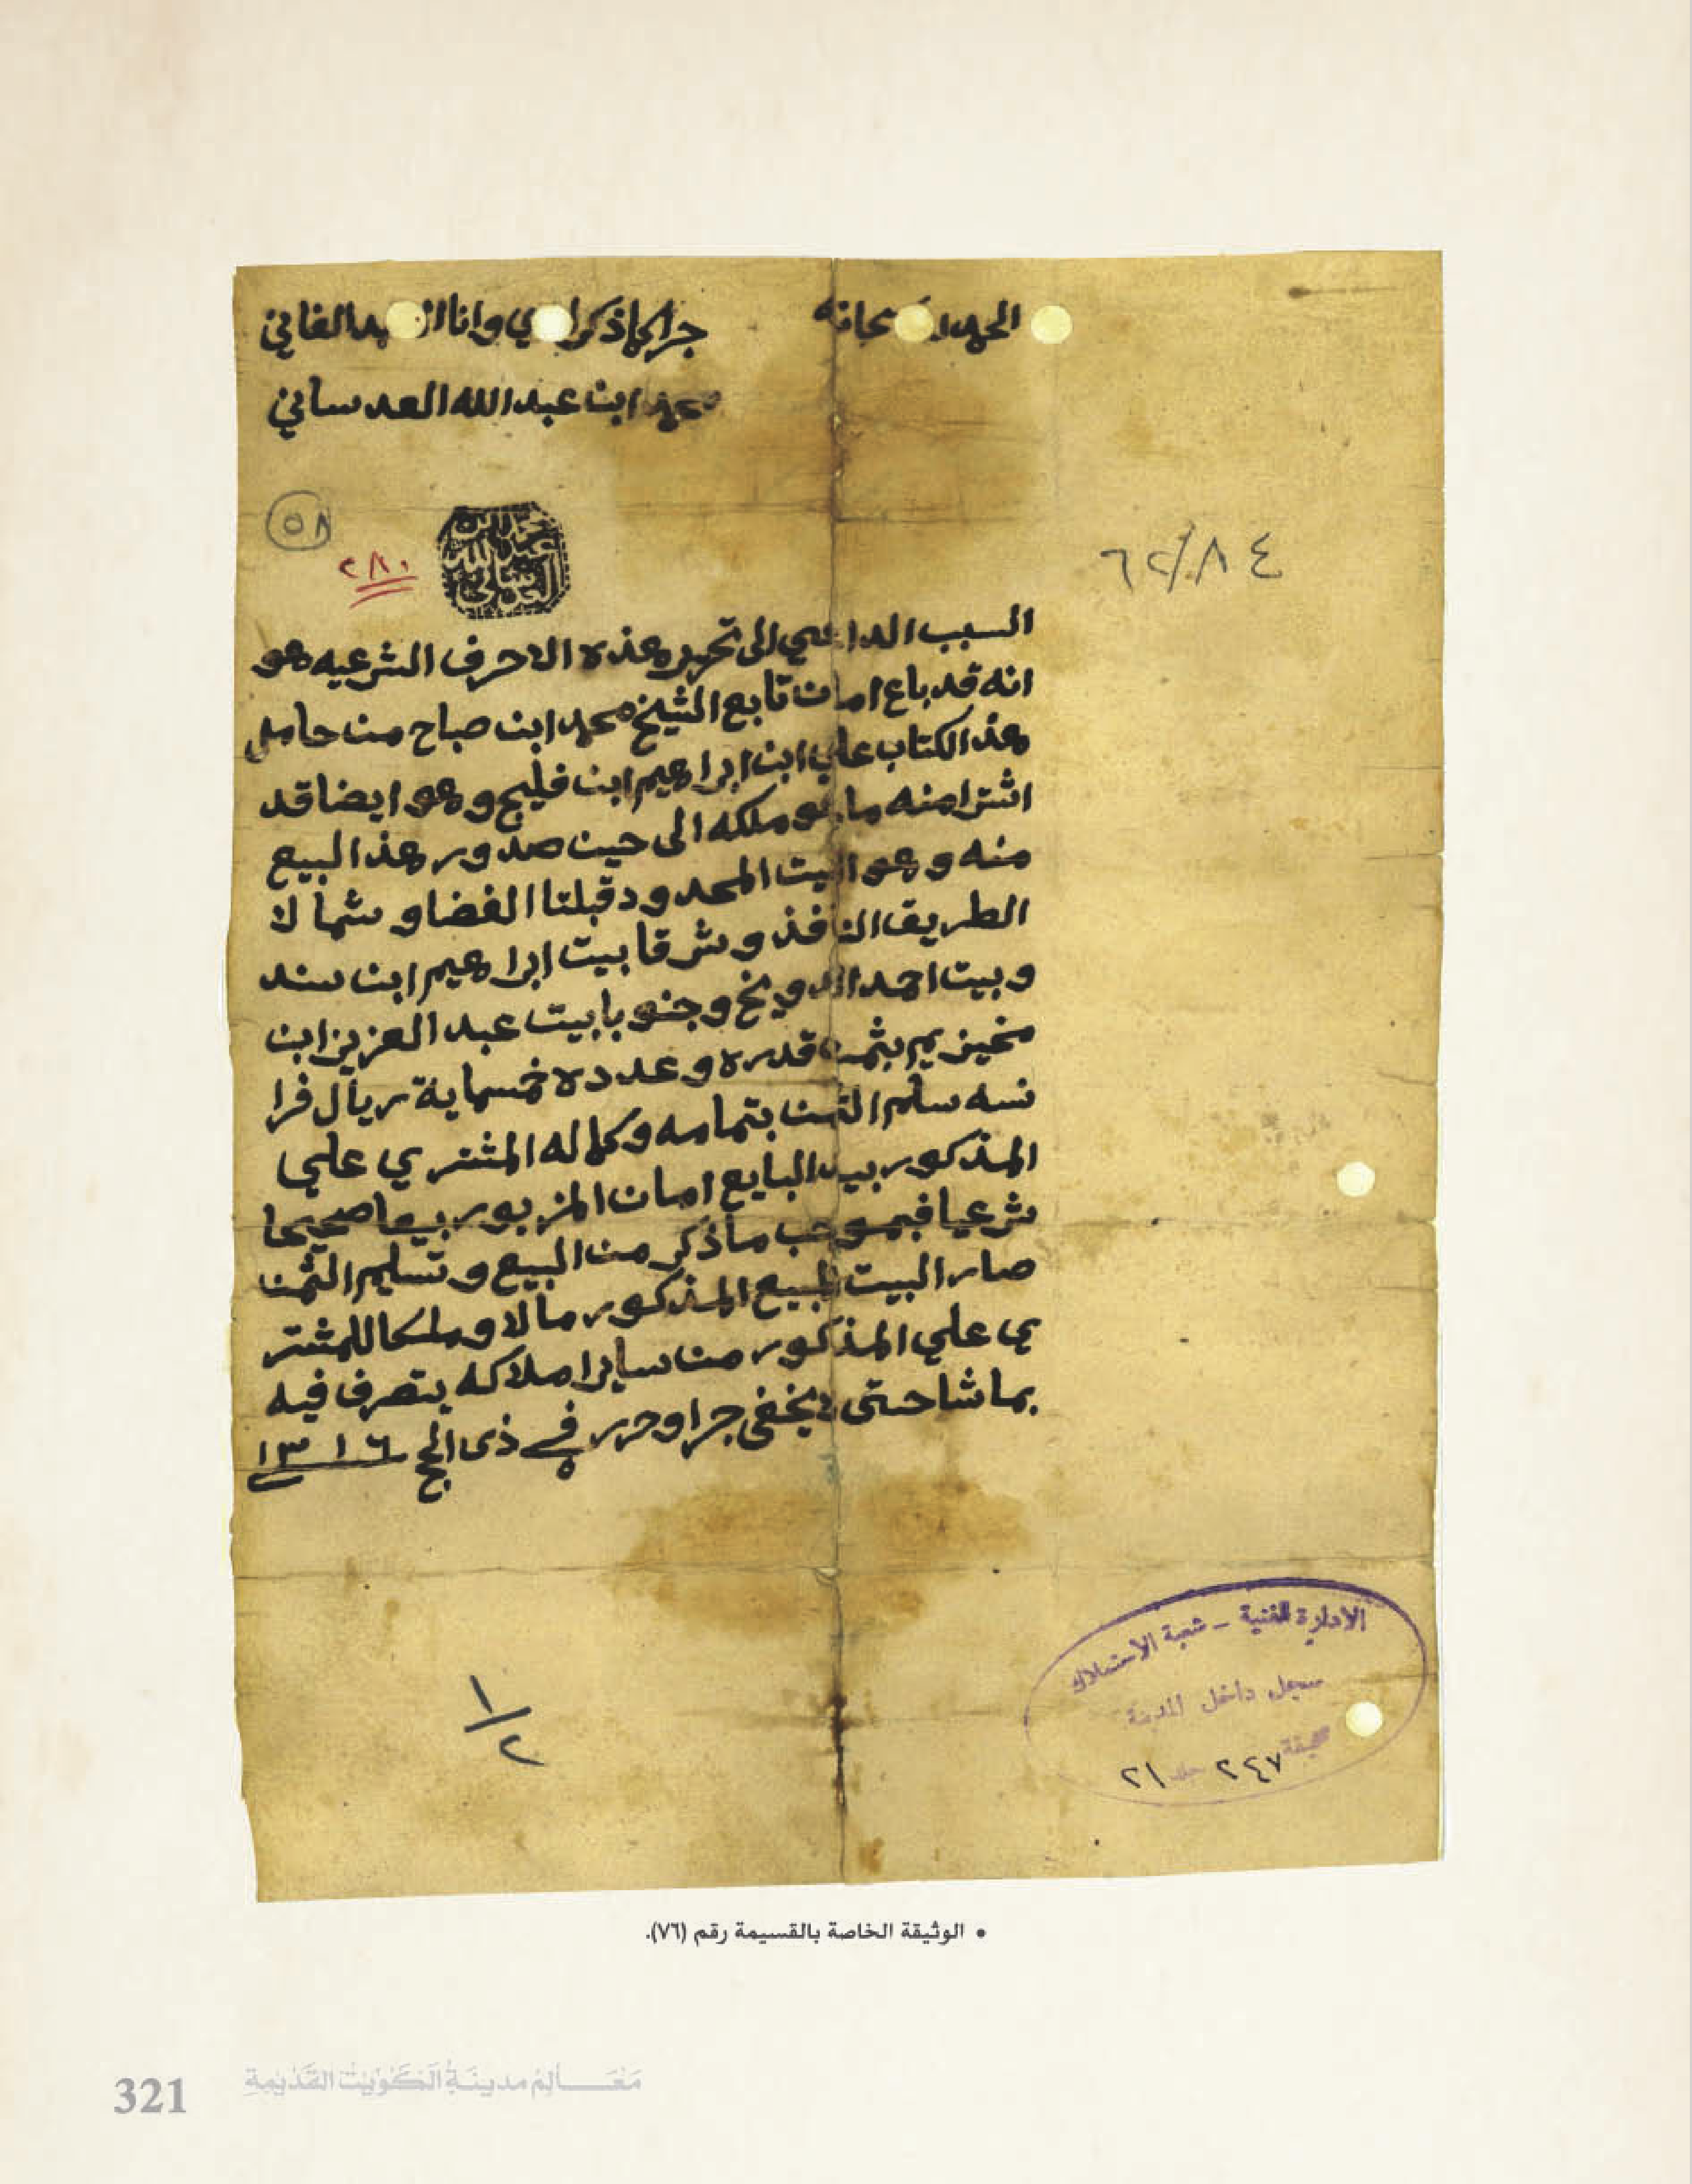 الحمد سبحانه
جرا كما ذكر لدي وانا العبد الفاني
محمد ابن عبدالله العدساني
٥٨
٢٨٠
٦٢/٨٤
السبب الداعي الى تحرير هذه الاحرف الشرعيه هو
انه قد باع امان تابع الشيخ محمد ابن صباح من حامل
هذ الكتاب علي ابن ابراهيم ابن فليج وهو ايضا قد
اشترا منه ما هو ملكه الى حين صدور هذ البيع
منه وهو البيت المحدود قبلتا الفضا وشمالا
الطريق النافذ وشرقا بيت ابراهيم ابن سند
وبيت احمد وجنوبا بيت عبد العزيز ابن
مخيزيم بثمن قدره وعدده خمسماية ريال فرا
نسه سلم الثمن بتمامه وكماله المشتري علي
المذكور بيد البايع امان المزبور بيعا صحيحا
شرعيا فبموجب ما ذكر من البيع وتسليم الثمن
صار البيت المبيع المذكور مالا وملكا للمشتر
ي علي المذكور من ساير املاكه يتصرف فيه
بما شا حتى لا يخفى جرا وحرر في ذى الحج ١٣١٦
١/٢
الادارة الفنية - شعبة الاستملاك
سجل داخل المدينة
صحيفة ٢٤٧ جلد ٢١
• الوثيقة الخاصة بالقسيمة رقم (٧٦).
321 مَعَالِمْ مدينَةِ الكُوَيْت القَدْيمة